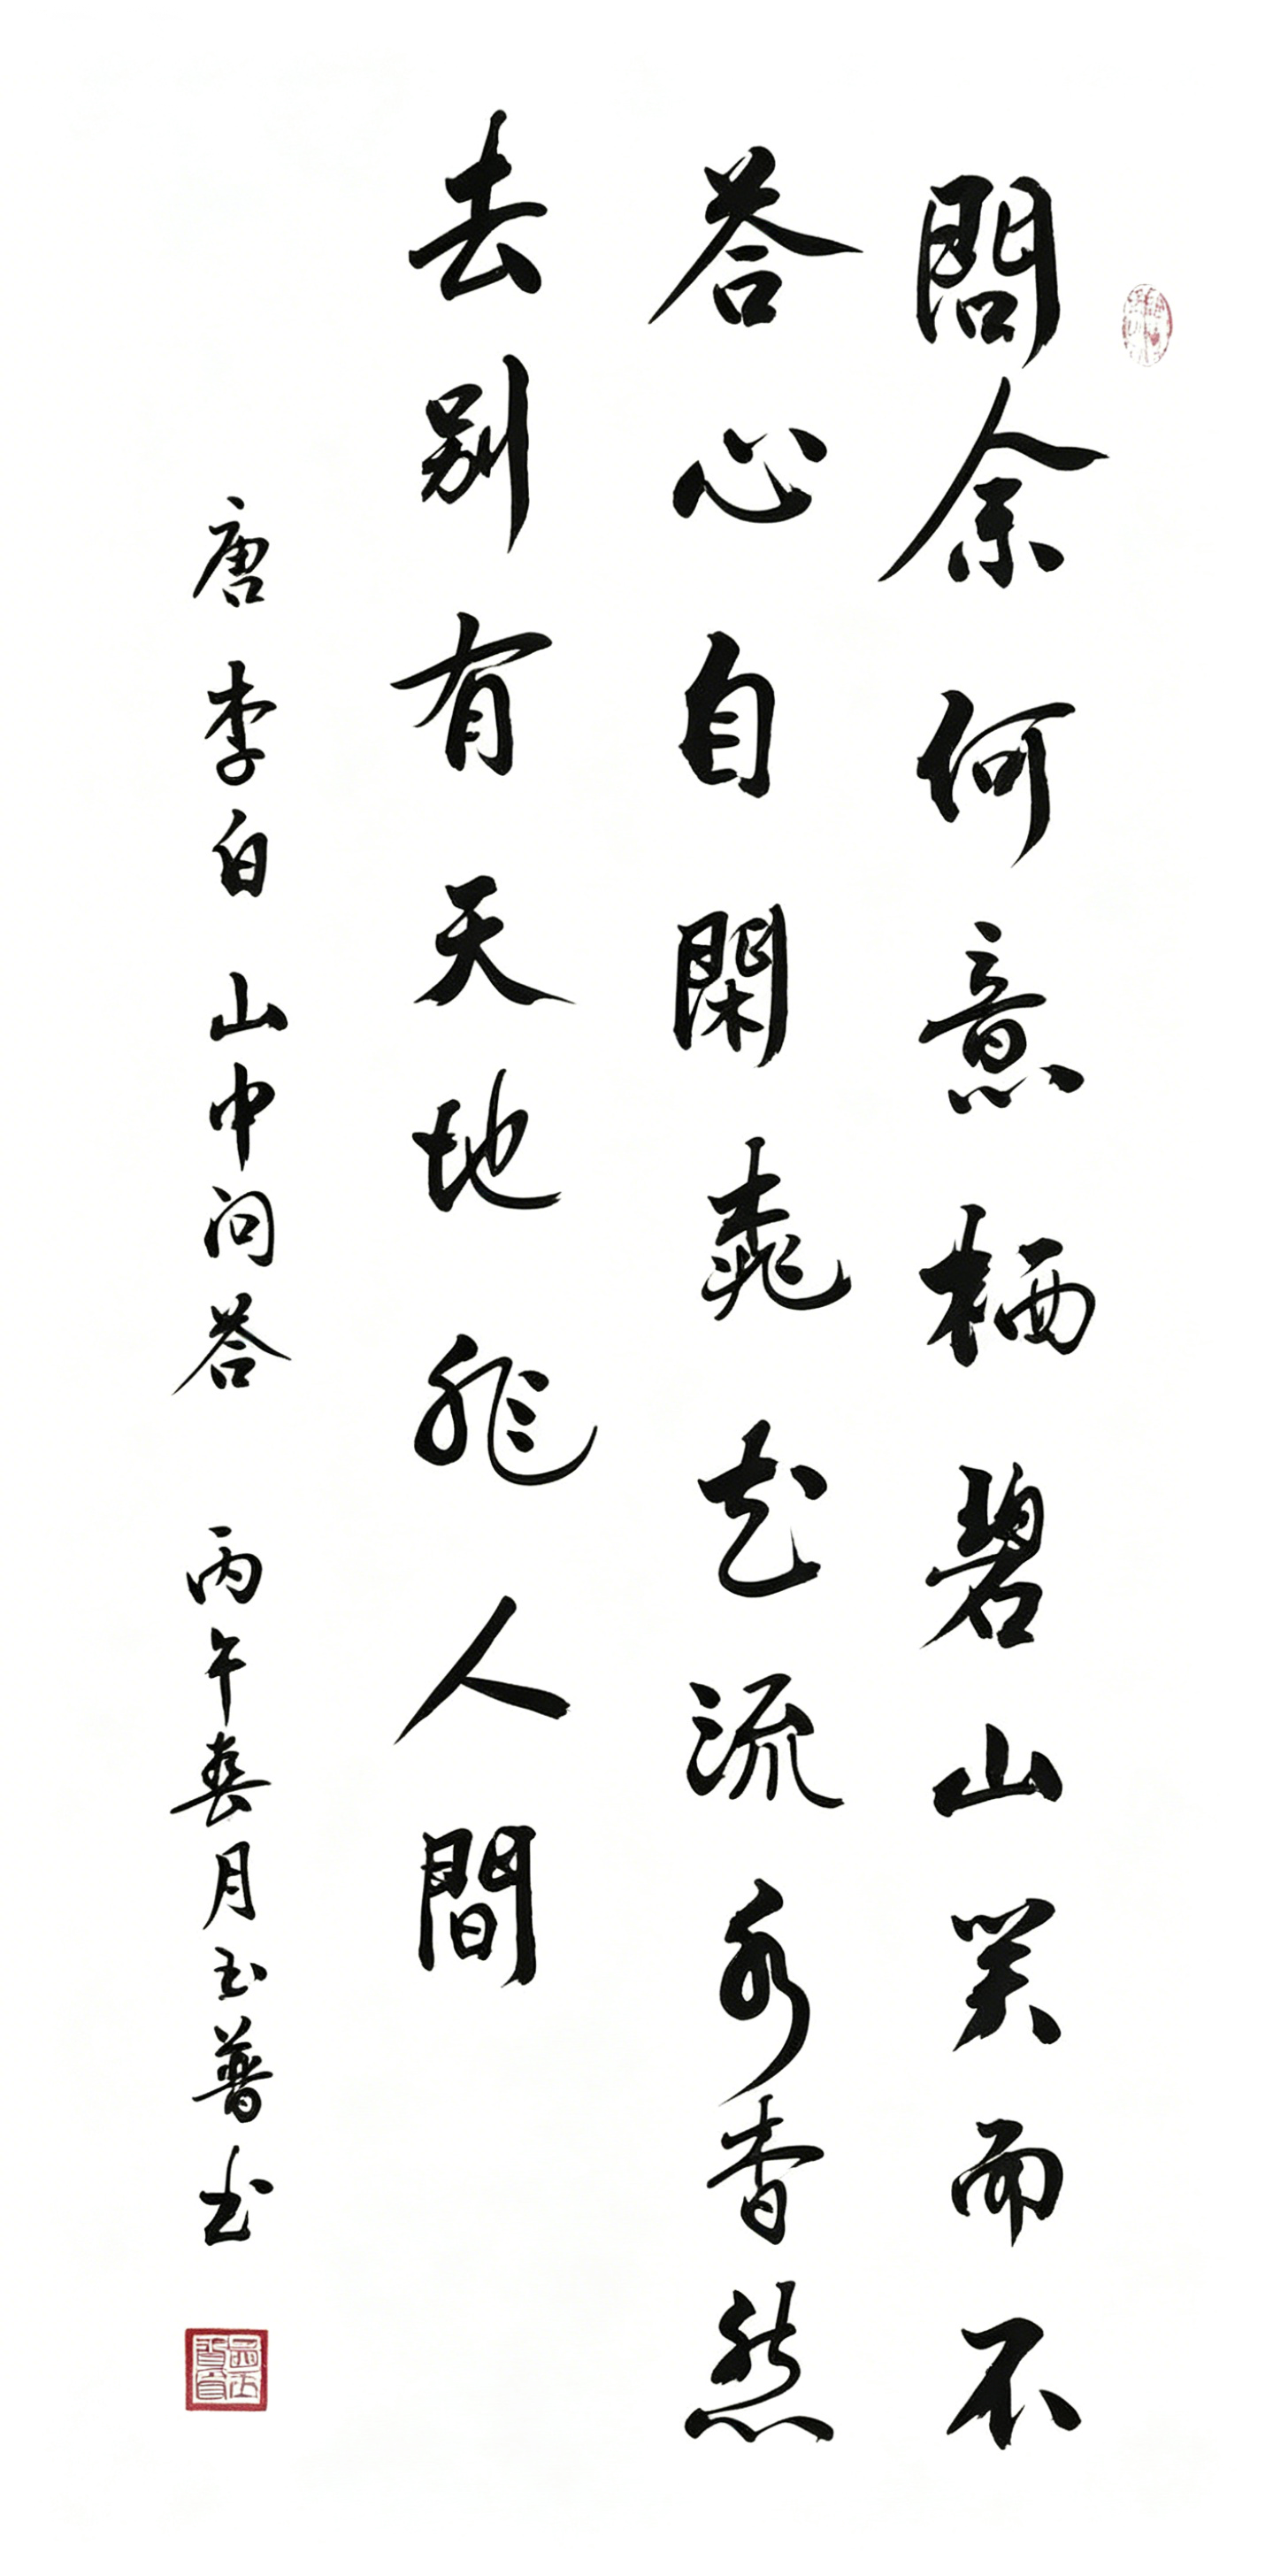 問余何意栖碧山笑而不
答心自閑桃花流水杳然
去别有天地非人間
唐 李白 山中问答 丙午春月玉普书